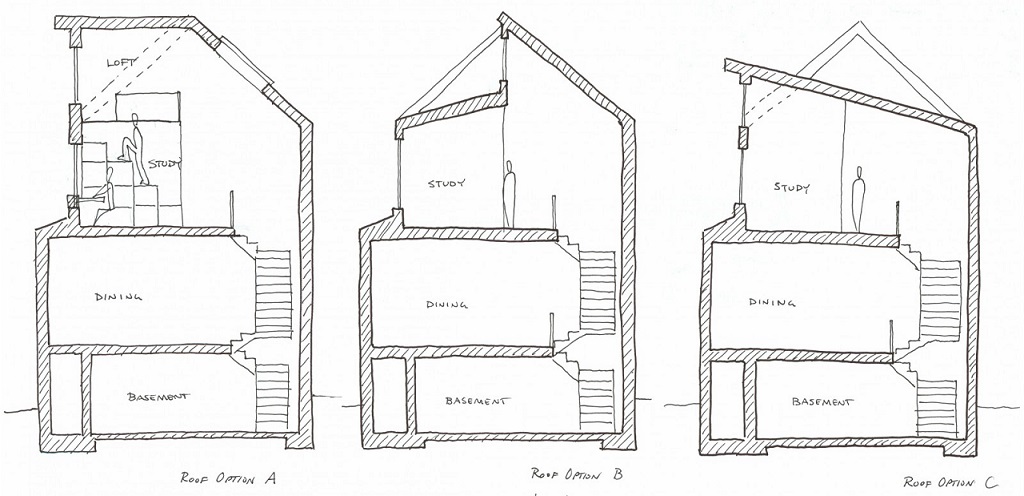 LOFT
STUDY
DINING
BASEMENT
ROOF OPTION A
STUDY
DINING
BASEMENT
ROOF OPTION B
STUDY
DINING
BASEMENT
ROOF OPTION C